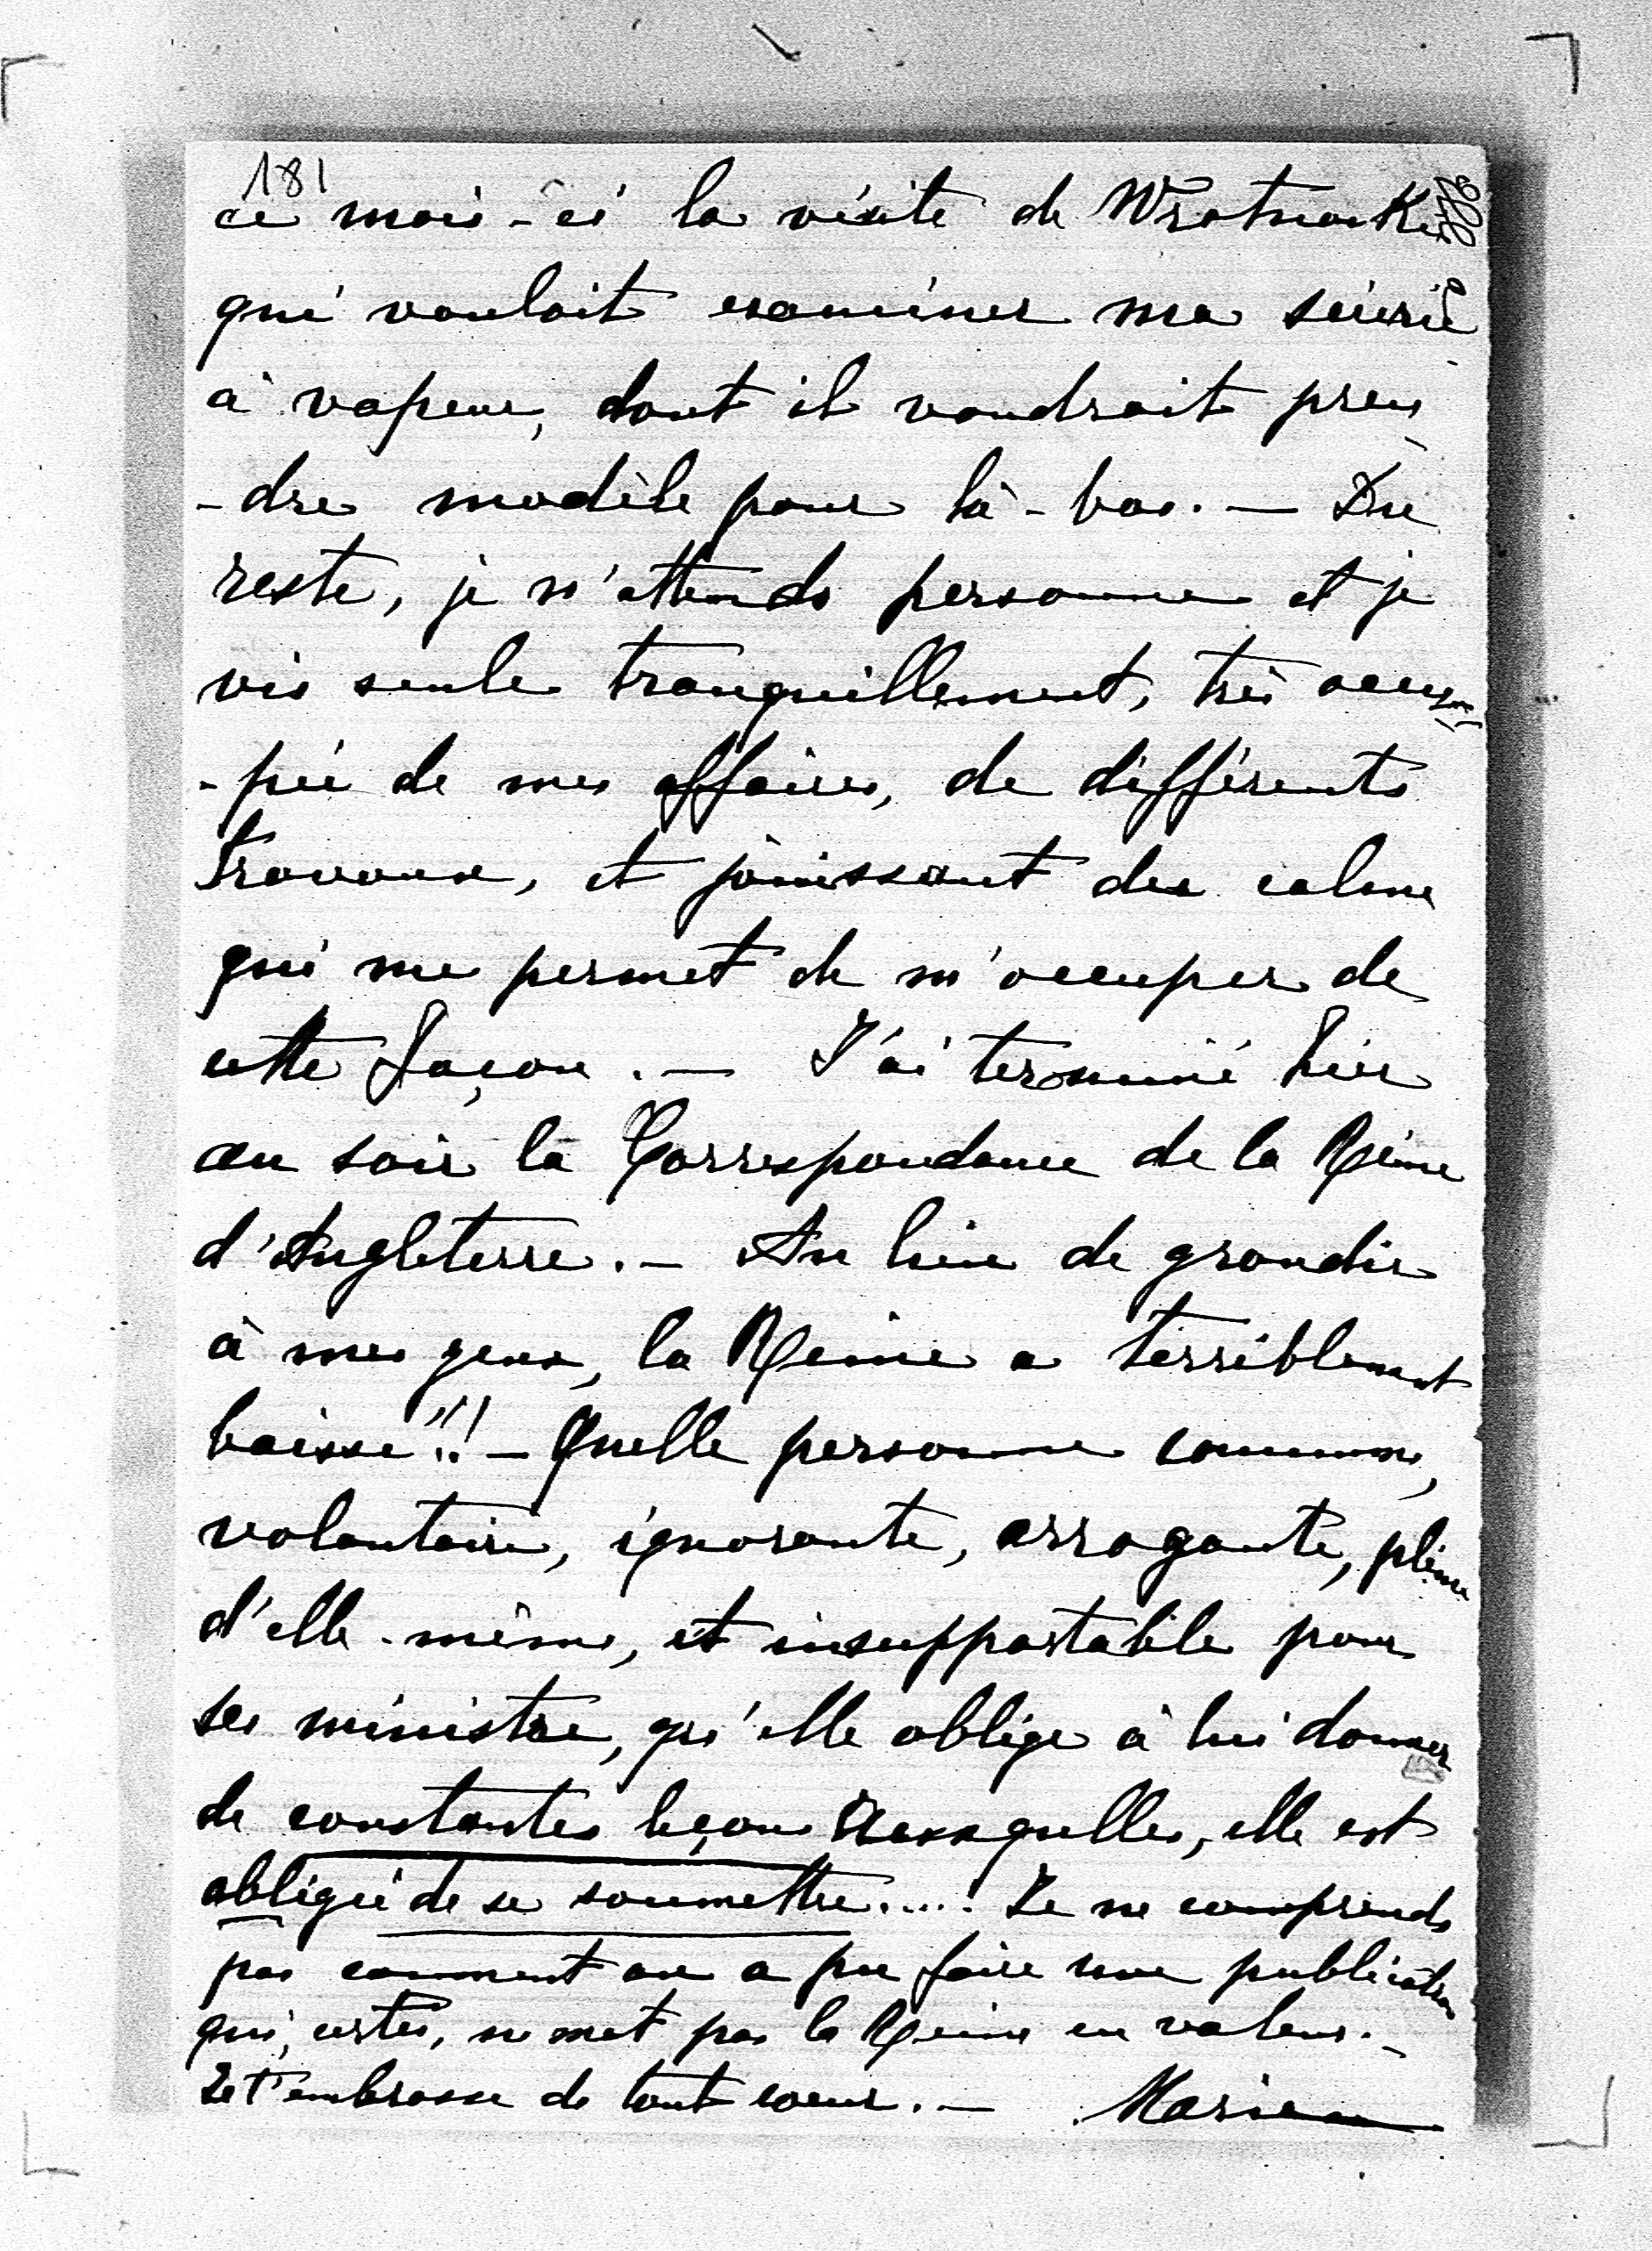 181
ce mois-ci la visite de Wrotnowski
qui voulait examiner ma scierie
à vapeur, dont il voudrait pren
-dre modèle pour là-bas. — Du
reste, je n'attends personne et je
vis seule tranquillement, très occu
-pée de mes affaires, de différents
travaux, et jouissant du calme
qui me permet de m'occuper de
cette façon. — J'ai terminé hier
au soir la Correspondance de la Reine
d'Angleterre. — Au lieu de grandir
à mes yeux, la Reine a terriblement
baissé!!! — Quelle personne commune,
volontaire, ignorante, arrogante, pleine
d'elle-même, et insupportable pour
ses ministre, qu'elle oblige à lui donner
de constantes leçons auxquelles, elle est
obligée de se soumettre..... Je ne comprends
pas comment on a pu faire une publication
qui, certes, ne met pas la Reine en valeur. —
Je t'embrasse de tout coeur. — Marie